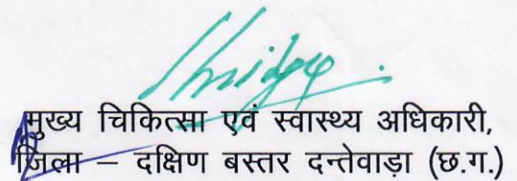 मुख्य चिकित्सा एवं स्वास्थ्य अधिकारी,
जिला – दक्षिण बस्तर दन्तेवाड़ा (छ.ग.)